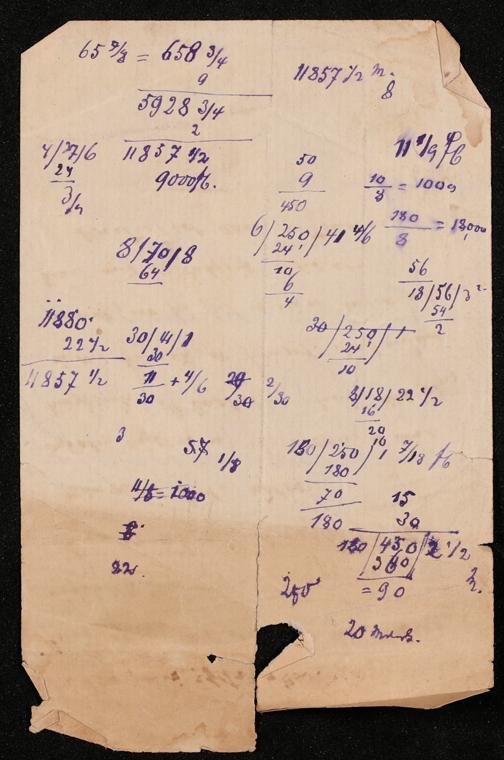 65 7/8 = 658 3/4
9
5928 3/4
2
11857 1/2
9000 fb.
24
3/4
8/70/8
64
11880
22 1/2
11857 1/2
30/41/1
30
11
30
+ 4/6
2/30
3
57
1/8
4/5 = 1000
22.
11857 1/2 m.
8
50
9
450
6/250/41 4/6
24
10
6
4
30/250/1
24
10
11 1/9 fb
10
8
= 1000
180
8
= 18,000
56
18/56/3
54
2
8/18/22 1/2
16
20
180/250/1 7/18 fb
180
70
180
15
30
180/450/2 1/2
360
= 90
250
20 Mark.